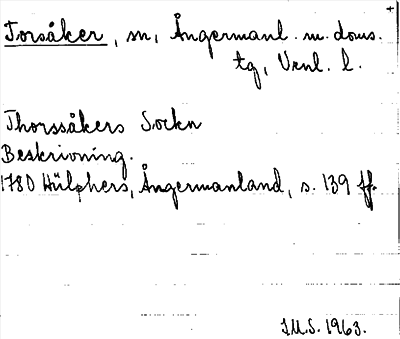 Torsåker, sn, Ångermanl. m. doms.
tg, Vrnl. l.
Thorssåkers Sockn
Beskrivning.
1780 Hülphers, Ångermanland, s. 139 ff.
I.M.S. 1963.